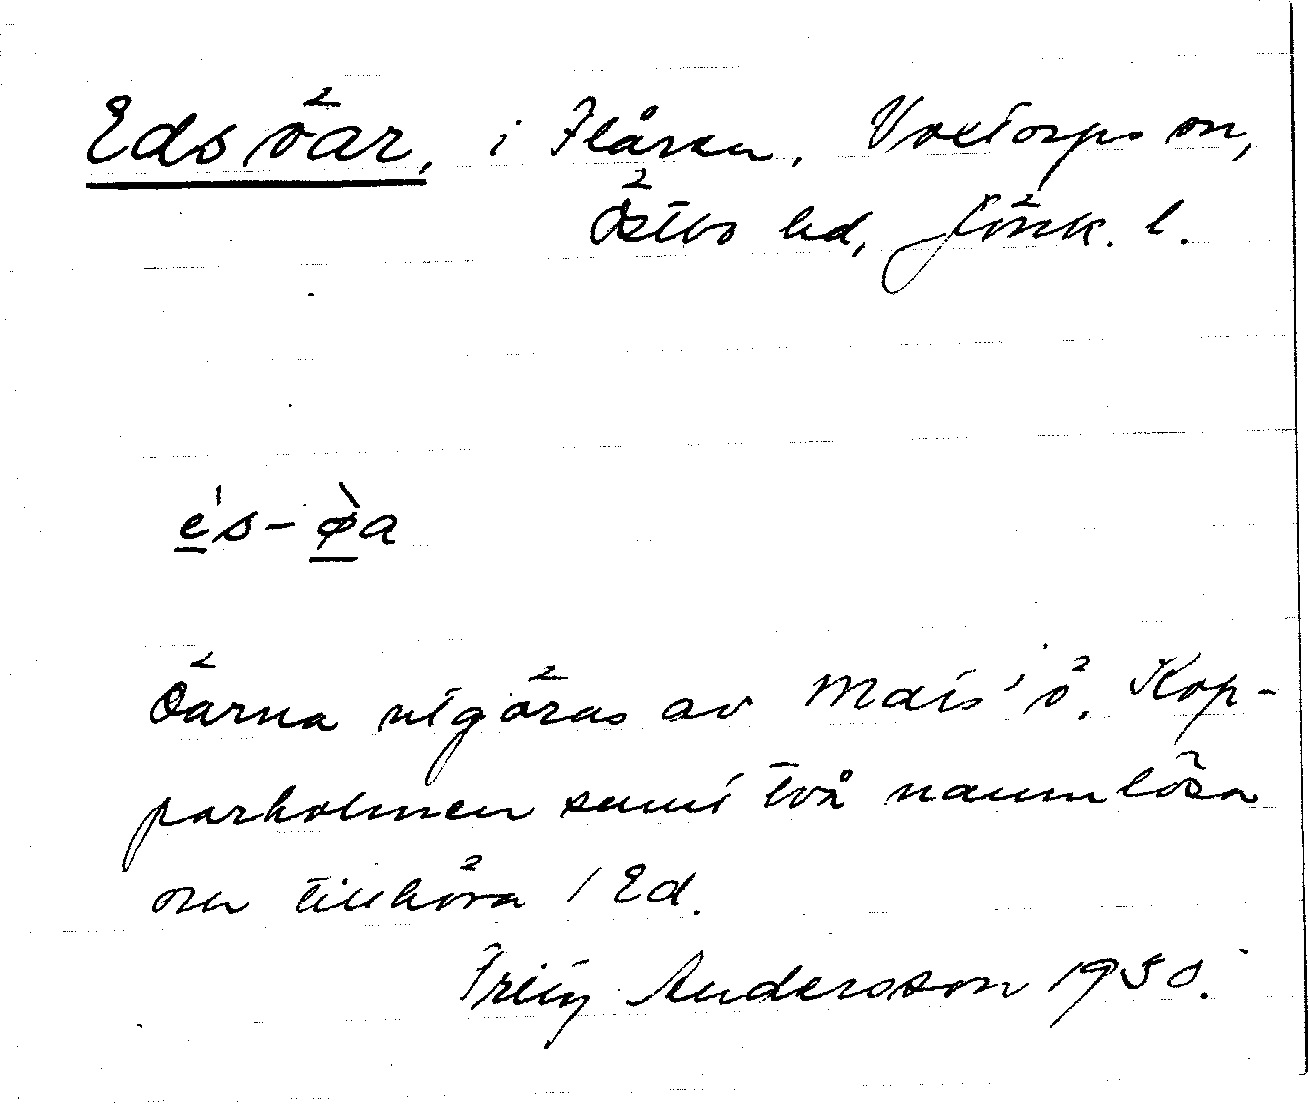 Edsöar, i Flåren, Voxtorps sn,
Östbo hd, Jönk. l.
e's-ø̀a
Öarna utgöras av Mats' ö, Kop-
parholmen samt två namnlösa
och tillhöra / Ed.
Andersson 1930.